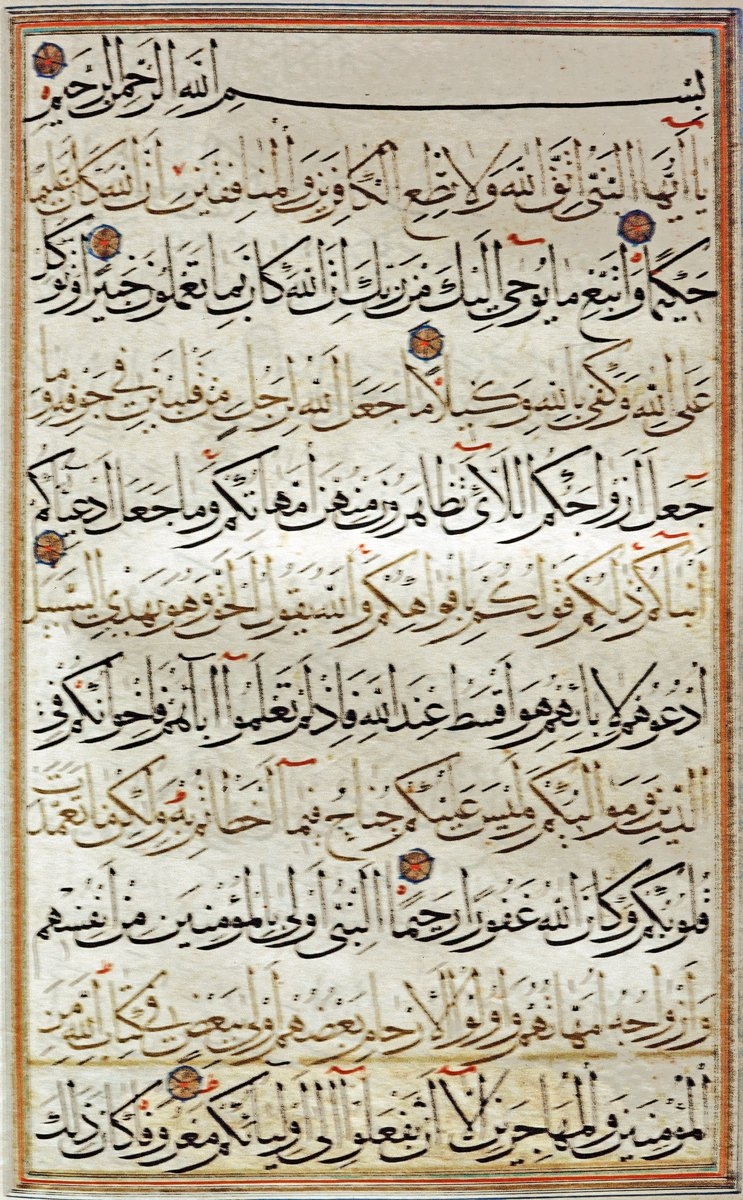 بِسْمِ اللَّهِ الرَّحْمٰنِ الرَّحِيمِ
يَا أَيُّهَا النَّبِيُّ اتَّقِ اللَّهَ وَلَا تُطِعِ الْكَافِرِينَ وَالْمُنَافِقِينَ إِنَّ اللَّهَ كَانَ عَلِيمًا
حَكِيمًا وَاتَّبِعْ مَا يُوحَى إِلَيْكَ مِنْ رَبِّكَ إِنَّ اللَّهَ كَانَ بِمَا تَعْمَلُونَ خَبِيرًا وَتَوَكَّلْ
عَلَى اللَّهِ وَكَفَى بِاللَّهِ وَكِيلًا مَا جَعَلَ اللَّهُ لِرَجُلٍ مِنْ قَلْبَيْنِ فِي جَوْفِهِ وَمَا
جَعَلَ أَزْوَاجَكُمُ اللَّائِي تُظَاهِرُونَ مِنْهُنَّ أُمَّهَاتِكُمْ وَمَا جَعَلَ أَدْعِيَاءَكُمْ
أَبْنَاءَكُمْ ذَلِكُمْ قَوْلُكُمْ بِأَفْوَاهِكُمْ وَاللَّهُ يَقُولُ الْحَقَّ وَهُوَ يَهْدِي السَّبِيلَ
اُدْعُوهُمْ لِآبَائِهِمْ هُوَ أَقْسَطُ عِنْدَ اللَّهِ فَإِنْ لَمْ تَعْلَمُوا آبَاءَهُمْ فَإِخْوَانُكُمْ فِي
الدِّينِ وَمَوَالِيكُمْ وَلَيْسَ عَلَيْكُمْ جُنَاحٌ فِيمَا أَخْطَأْتُمْ بِهِ وَلَكِنْ مَا تَعَمَّدَتْ
قُلُوبُكُمْ وَكَانَ اللَّهُ غَفُورًا رَحِيمًا النَّبِيُّ أَوْلَى بِالْمُؤْمِنِينَ مِنْ أَنْفُسِهِمْ
وَأَزْوَاجُهُ أُمَّهَاتُهُمْ وَأُولُو الْأَرْحَامِ بَعْضُهُمْ أَوْلَى بِبَعْضٍ فِي كِتَابِ اللَّهِ مِنَ
الْمُؤْمِنِينَ وَالْمُهَاجِرِينَ إِلَّا أَنْ تَفْعَلُوا إِلَى أَوْلِيَائِكُمْ مَعْرُوفًا كَانَ ذَلِكَ